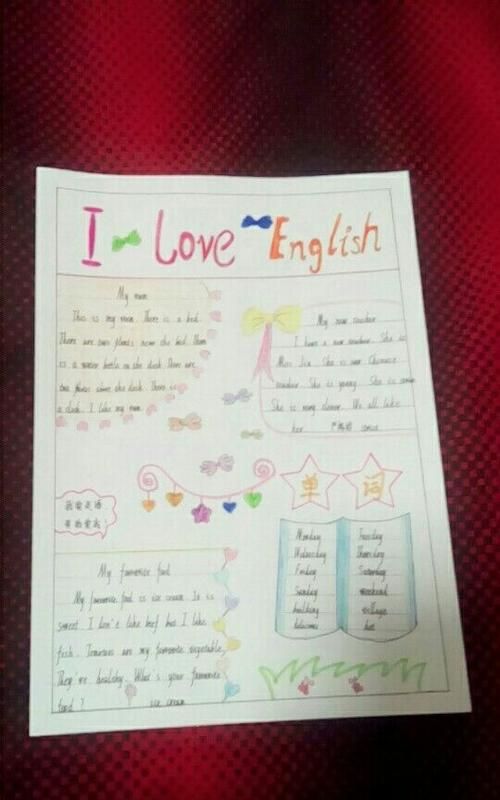 I Love English
My room
This is my room. There is a bed.
There are two plants near the bed. There
is a water bottle on the desk. There are
two above the desk. There is
a I like my room.
My new teacher
I have a new teacher. She is
Miss She is our Chinese
teacher. She is young. She is
She is very clever. We all like
her
我爱英语
单词
Monday Tuesday
Wednesday Thursday
Friday Saturday
Sunday weekend
building village
My favourite food
My favourite food is ice cream. It is
sweet. I don't like beef but I like
fish. are my favourite vegetable.
They're healthy. What's your favourite
food ? ice cream